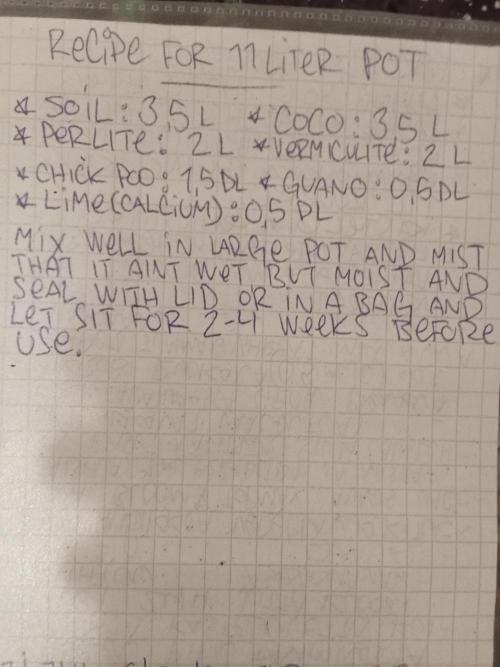 RECIPE FOR 11 LITER POT
* SOIL: 3,5 L * COCO: 3,5 L
* PERLITE: 2 L * VERMICULITE: 2 L
* CHICK POO: 1,5 DL * GUANO: 0,5 DL
* LIME(CALCIUM): 0,5 DL
MIX WELL IN LARGE POT AND MIST
THAT IT AINT WET BUT MOIST AND
SEAL WITH LID OR IN A BAG AND
LET SIT FOR 2-4 WEEKS BEFORE
USE.